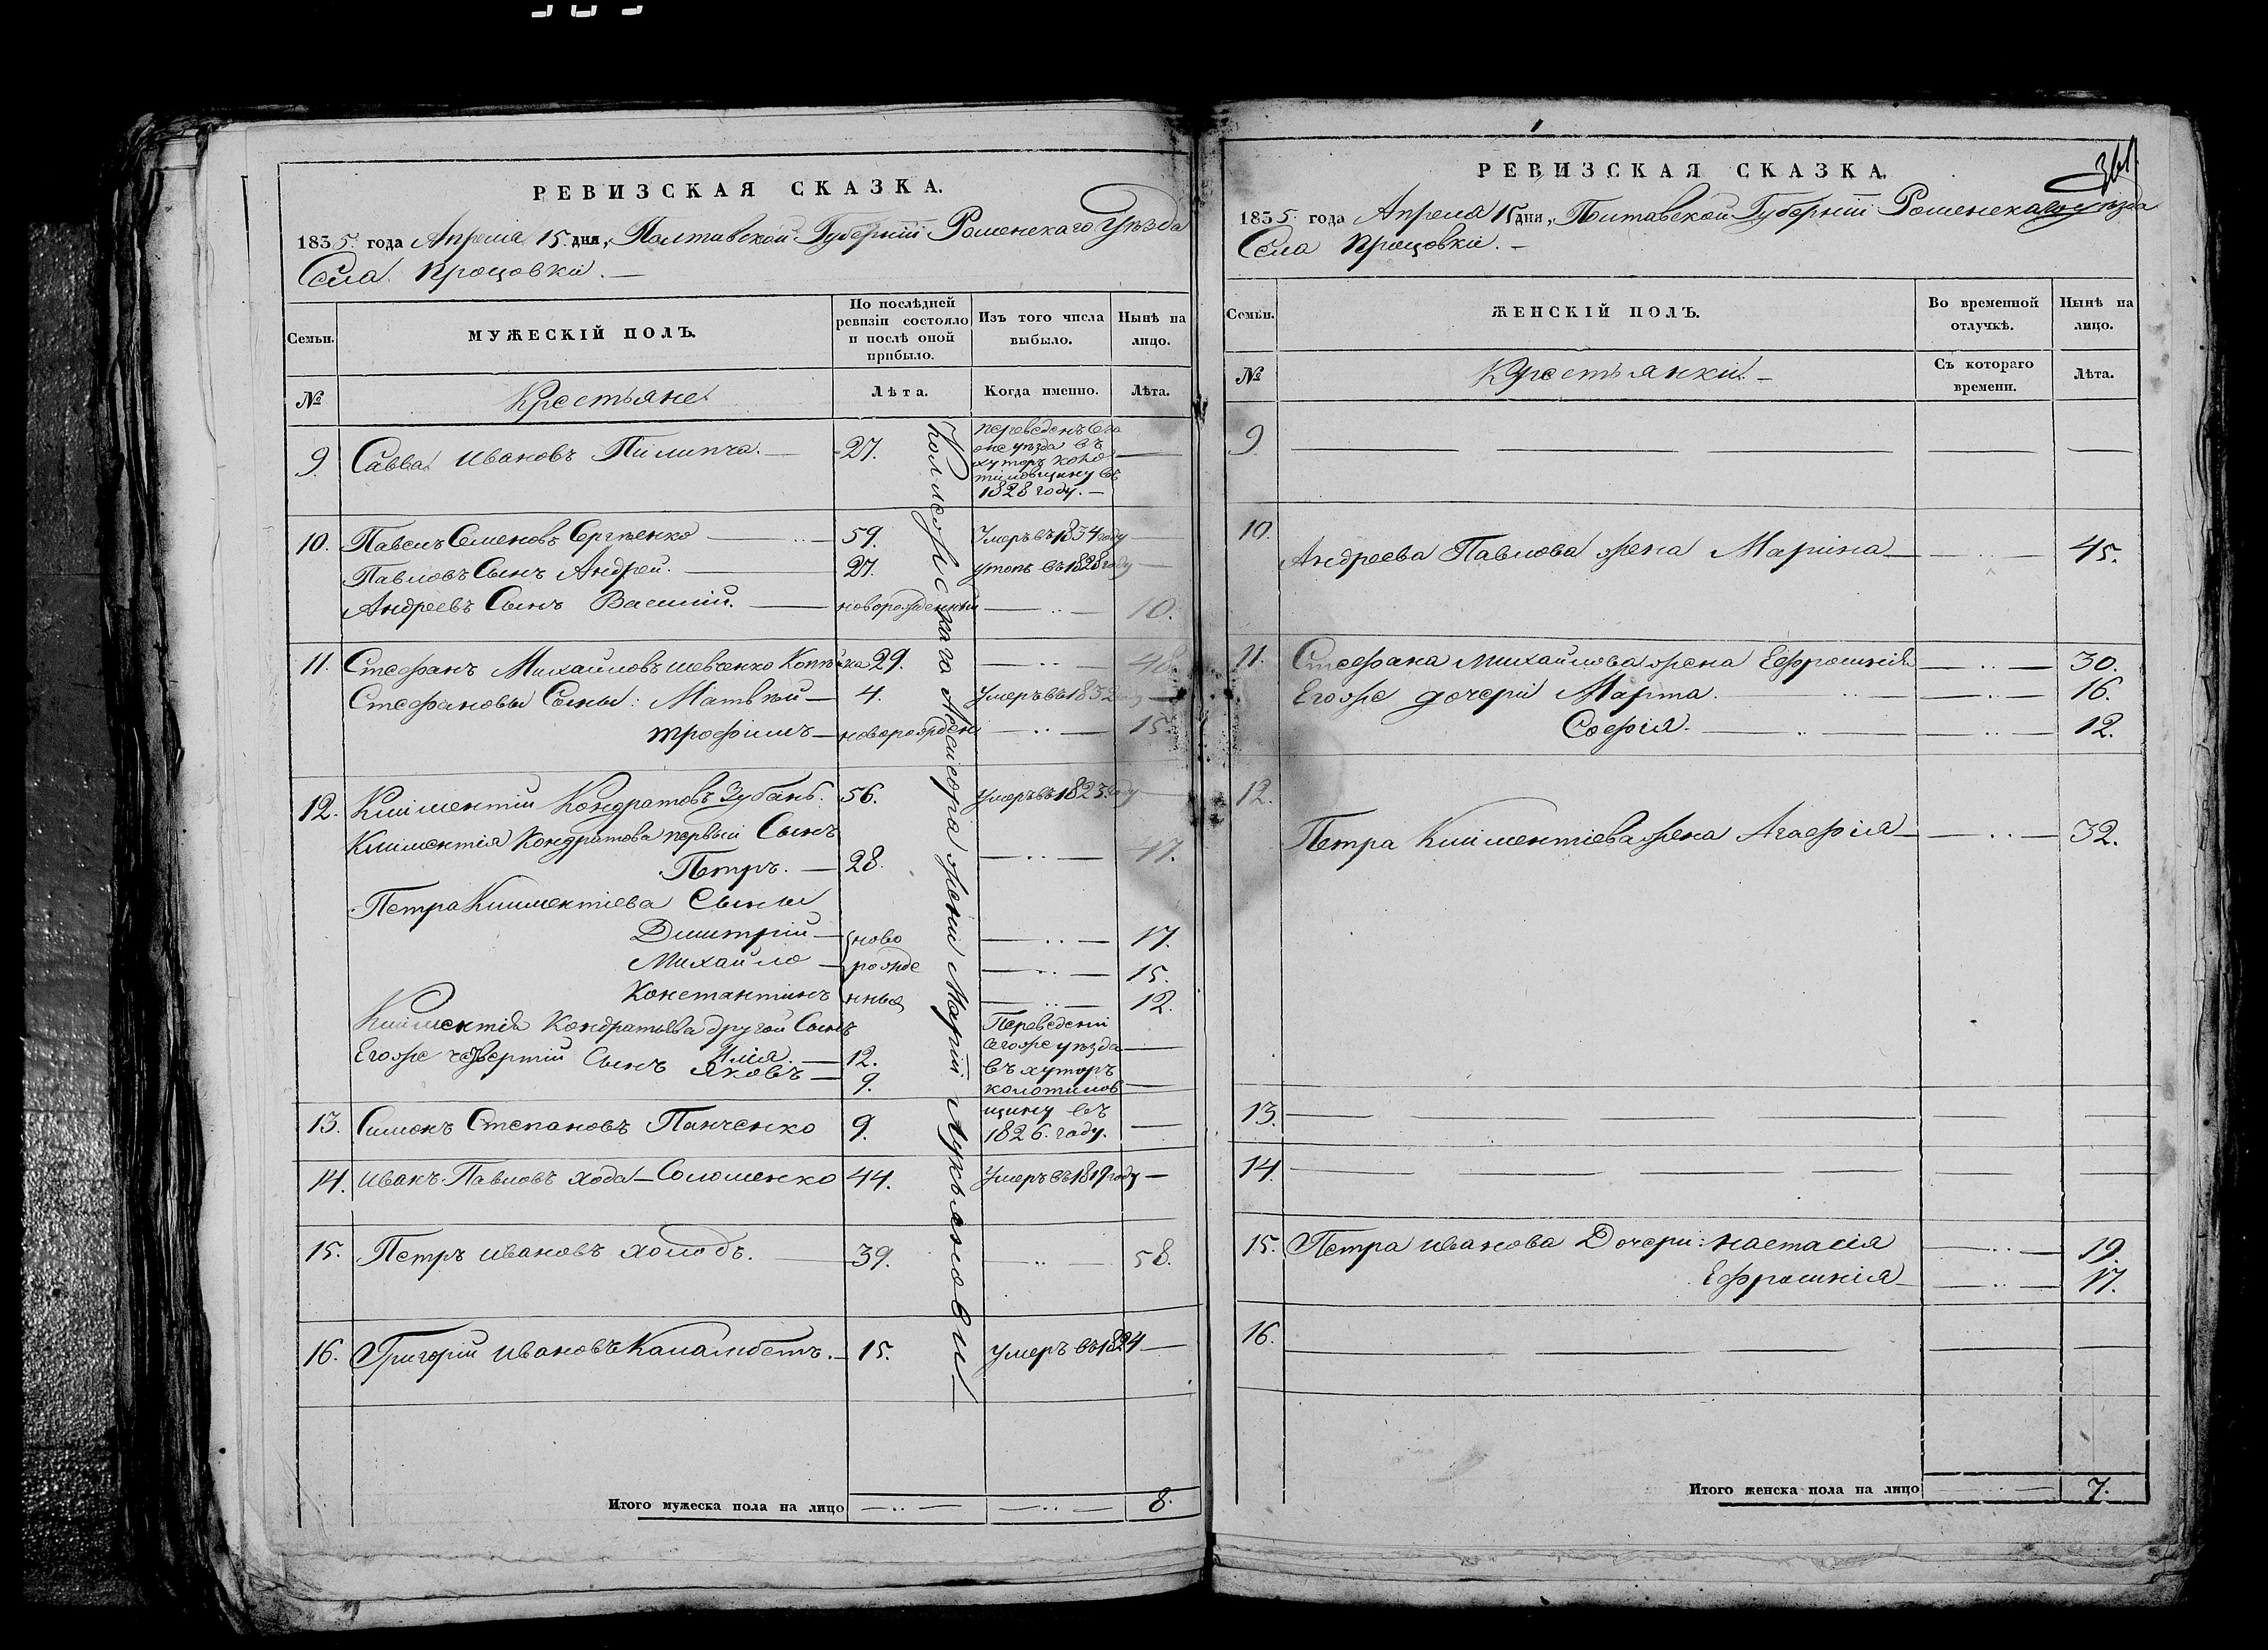 РЕВИЗСКАЯ СКАЗКА.
1835. года Апреля 15. дня, Полтавской Губерніи Роменскаго Уѣзда
Села Процовки. —
Семьи. МУЖЕСКІЙ ПОЛЪ. По послѣдней ревизіи состояло и послѣ оной прибыло. Изъ того числа выбыло. Нынѣ на лицо.
№ Крестьяне Лѣта. Когда именно. Лѣта.
9. Савва Ивановъ Пилипча. — 27. переведенъ Его же уѣзда въ хуторъ Коло тиловщину въ 1828 году. — —
10. Павелъ Семеновъ Сергіенко — 59. Умеръ въ 1834 году —
Павловъ Сынъ Андрей. — 27. утопъ въ 1828 году —
Андреевъ Сынъ Василій. — новорожденный — 10.
11. Стефанъ Михайловъ Шевченко 29. — 48.
Стефановы Сыны: Матвѣй — 4. Умеръ въ 1832 году —
Трофимъ — новорожден — 15.
12. Климентій Кондратовъ Зубань. 56. Умеръ въ 1823. году —
Климентія Кондратова первый Сынъ
Петръ. — 28. — 47.
Петра Климентіева Сыны
Дмитрій — ново — 17.
Михайло — рожде — 15.
Константинъ нныя — 12.
Климентія Кондратьева другой Сынъ Переведены
Илія. — 12. Сегоже уѣзда —
Егоже четвертій Сынъ Яковъ — 9. въ хуторъ колотилов —
13. Симонъ Степановъ Панченко 9. щину въ 1826. году. —
14. Иванъ Павловъ Хода — Соломенко 44. Умеръ въ 1819 году —
15. Петръ Ивановъ Холодъ. — 39. — 58.
16. Григорій Ивановъ Калаибетъ. — 15. Умеръ въ 1824 —
Коллежскаго Асессора жены Маріи Лукьянови
Итого мужеска пола на лицо — — 8.
РЕВИЗСКАЯ СКАЗКА.
1835. года Апреля 15 дня, Полтавской Губерніи Роменскаго уѣзда
Села Процовки. —
Семьи. ЖЕНСКІЙ ПОЛЪ. Во временной отлучкѣ. Нынѣ на лицо.
№ Крестьянки. — Съ котораго времени. Лѣта.
9 — — —
10. Андреева Павлова жена Марина — — 45.
11. Стефана Михайлова жена Ефросинія — 30.
Егоже дочери Марта. — 16.
Софія. — — 12.
12. Петра Климентіева жена Агафія — — 32.
13. — — —
14. — — —
15. Петра Иванова Дочери: Настасія — 19.
Ефросинія — — 17.
16. — — —
Итого женска пола на лицо — 7.